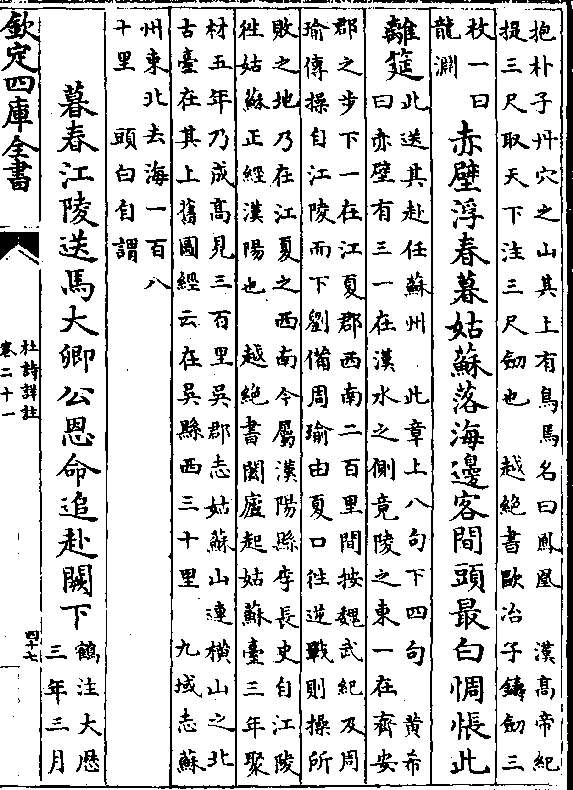 抱朴子丹穴之山其上有鳥馬名曰鳳凰　漢高帝紀
提三尺取天下注三尺劒也　越絶書歐冶子鑄劒三
枚一曰
龍淵
赤壁浮春暮姑蘇落海邊客間頭最白惆悵此
離筵
此送其赴任蘇州　此章上八句下四句　黄希
曰赤壁有三一在漢水之側竟陵之東一在齊安
郡之步下一在江夏郡西南二百里間按魏武紀及周
瑜傳操自江陵而下劉備周瑜由夏口往逆戰則操所
敗之地乃在江夏之西南今屬漢陽縣李長史自江陵
徃姑蘇正經漢陽也　越絶書闔廬起姑蘇臺三年聚
材五年乃成高見三百里吳郡志姑蘇山連橫山之北
古臺在其上舊圖經云在吳縣西三十里　九域志蘇
州東北去海一百八
十里　頭白自謂
暮春江陵送馬大卿公恩命追赴闕下
鶴注大厯
三年三月
欽定四庫全書
杜詩詳註
卷二十一
四十七